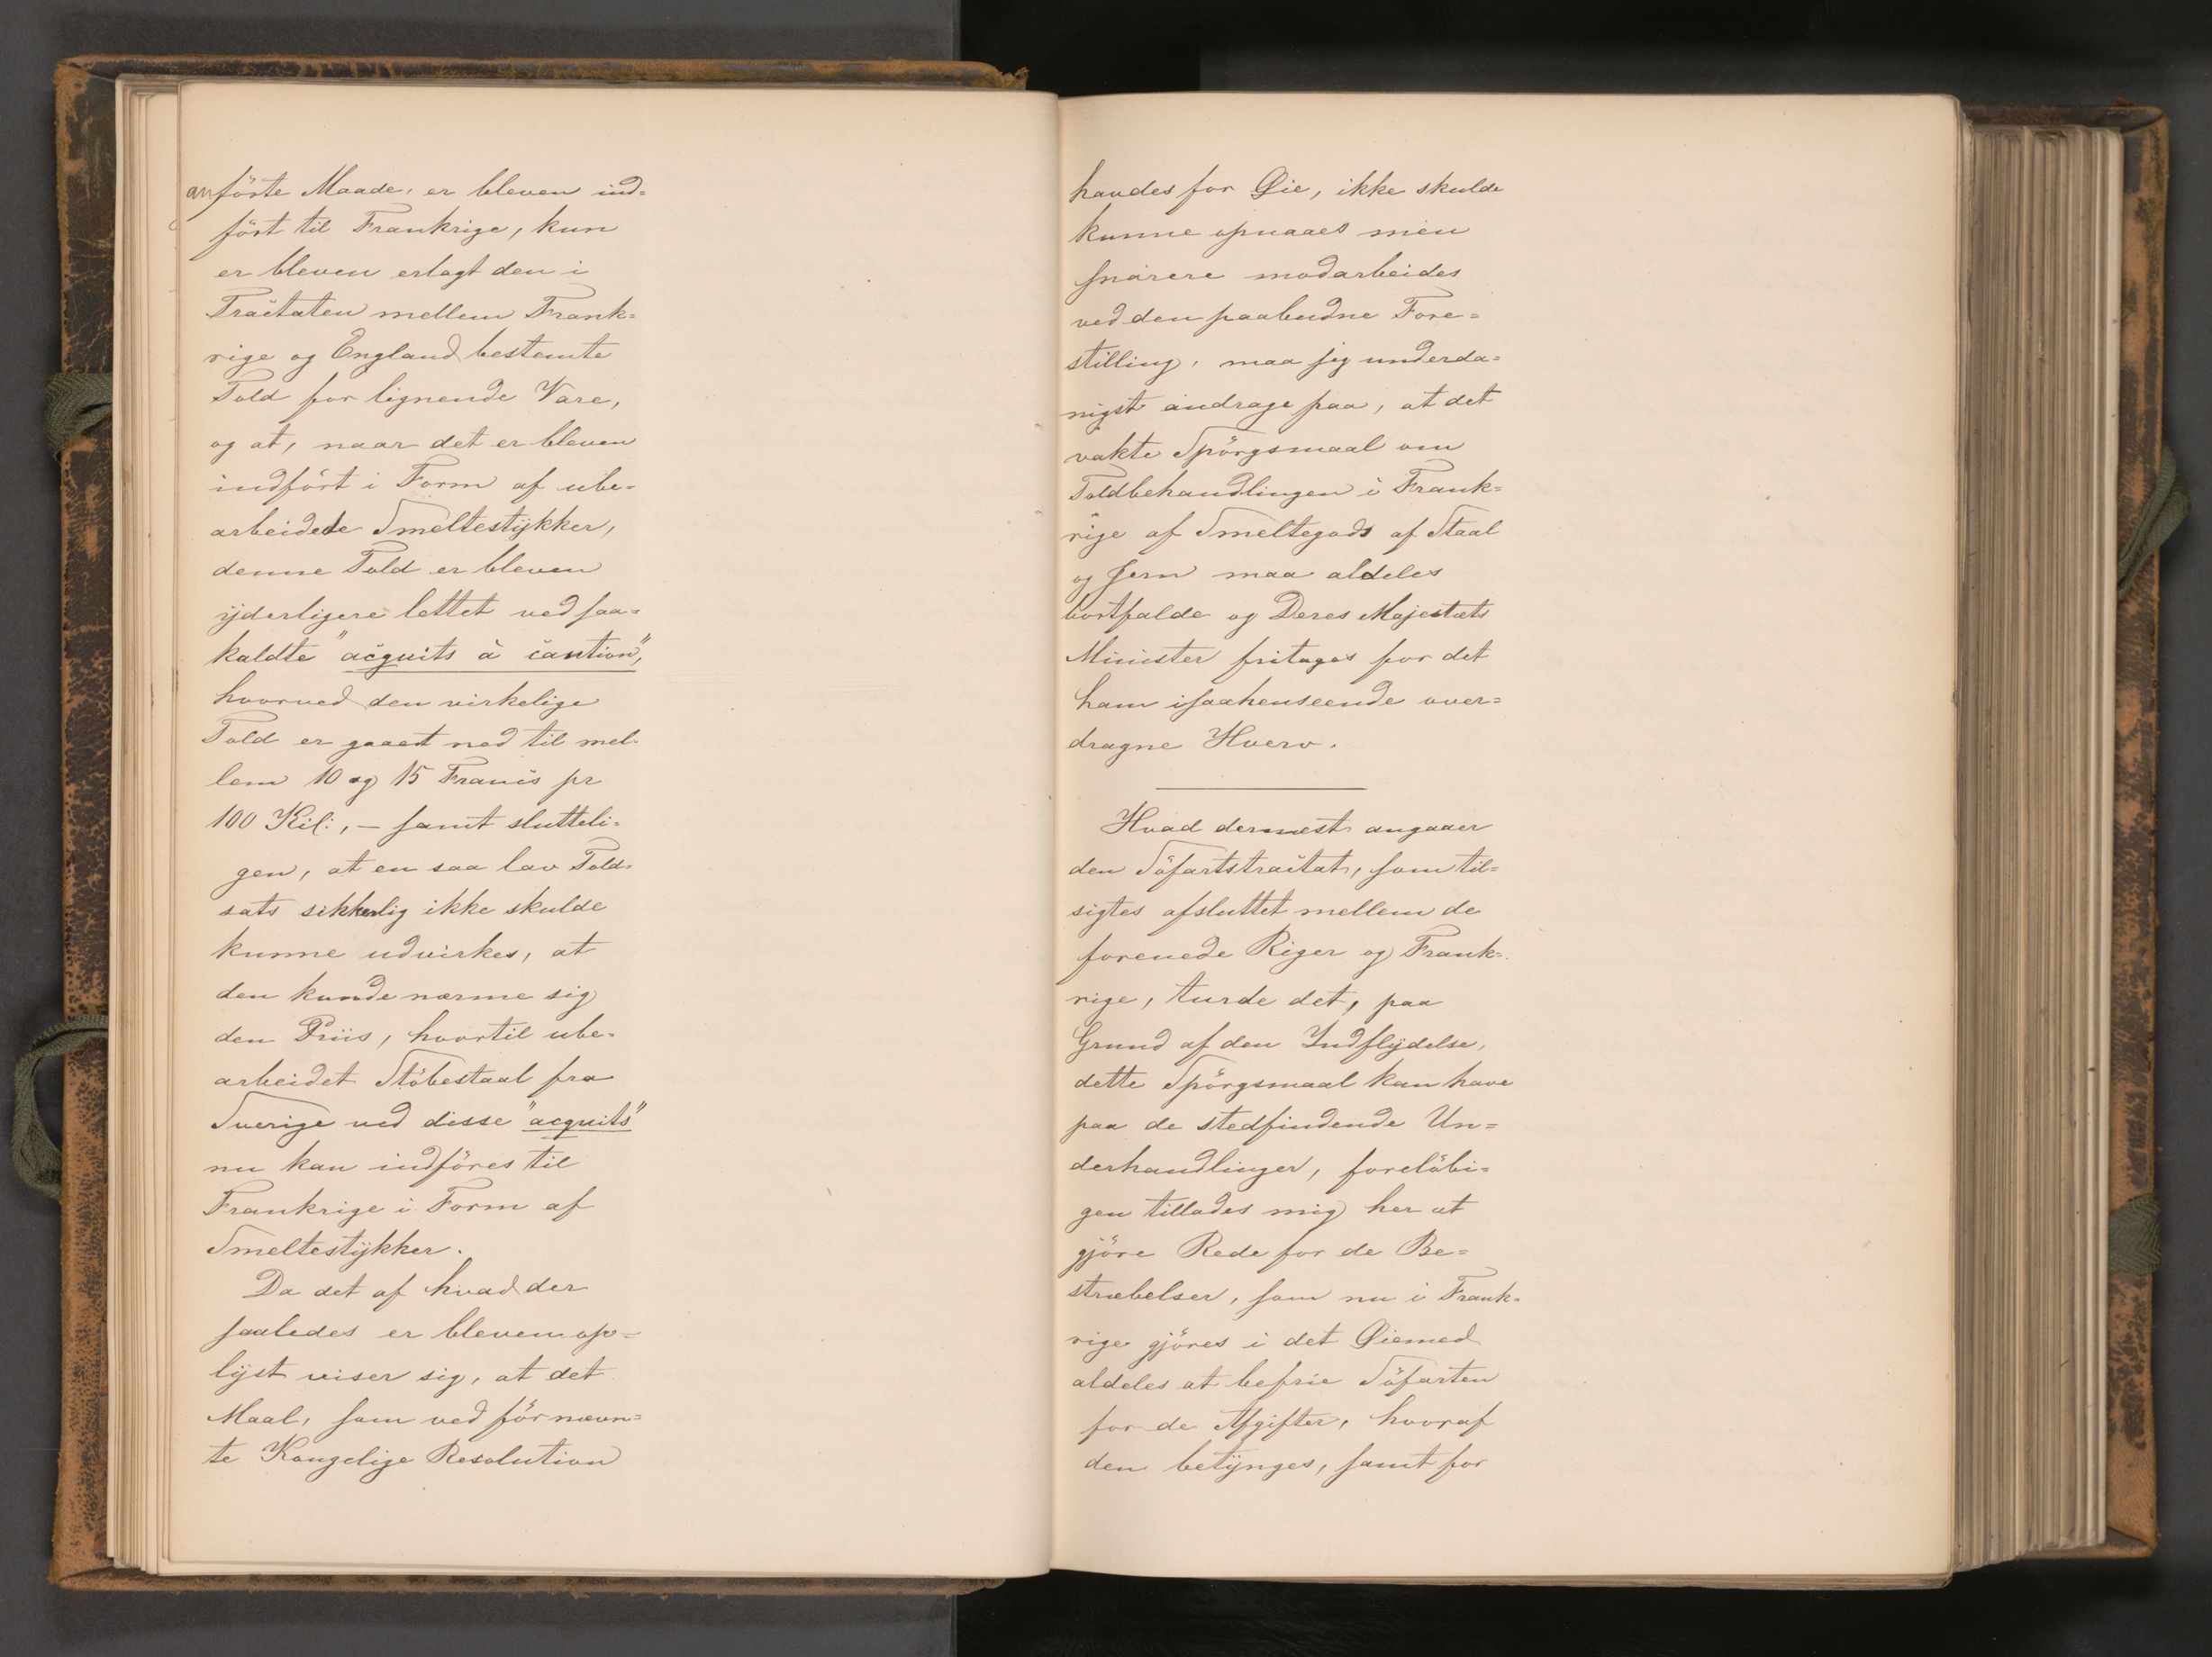 anförte Maade, er bleven ind=
fört til Frankrige, kun
er bleven erlagt den i
Tractaten mellem Frank=
rige og England bestemte
Told for lignende Vare,
og at, naar det er bleven
indfört i Form af ube=
arbeidede Smeltestykker,
denne Told er bleven
yderligere lettet ved saa=
kaldte "acquits à caution",
hvorved den virkelige
Told er gaaet ned til mel=
lem 10 og 15 Francs pr
100 Kil:, – samt slutteli=
gen, at en saa lav Told=
sats sikkerlig ikke skulde
kunne udvirkes, at
den kunde nærme sig
den Priis, hvortil ube=
arbeidet Stöbestaal fra
Sverige ved disse "acquits"
nu kan indföres til
Frankrige i Form af
Smeltestykker.
Da det af hvad der
saaledes er bleven op=
lyst viser sig, at det
Maal, som ved förnævn=
te Kongelige Resolution
havdes for Øie, ikke skulde
kunne opnaaes men
snarere modarbeides
ved den paabudne Fore=
stilling, maa jeg underda=
nigst andrage paa, at det
vakte Spörgsmaal om
Toldbehandlingen i Frank=
rige af Smeltegods af Staal
og Jern maa aldeles
bortfalde og Deres Majestæts
Minister fritages for det
ham isaahenseende over=
dragne Hverv.
Hvad dernæst angaaer
den Söfartstractat, som til=
sigtes afsluttet mellem de
forenede Riger og Frank=
rige, turde det, paa
Grund af den Indflydelse,
dette Spörgsmaal kan have
paa de stedfindende Un=
derhandlinger, forelöbi=
gen tillades mig her at
gjöre Rede for de Be=
stræbelser, som nu i Frank=
rige gjöres i det Øiemed
aldeles at befrie Söfarten
for de Afgifter, hvoraf
den betynges, samt for